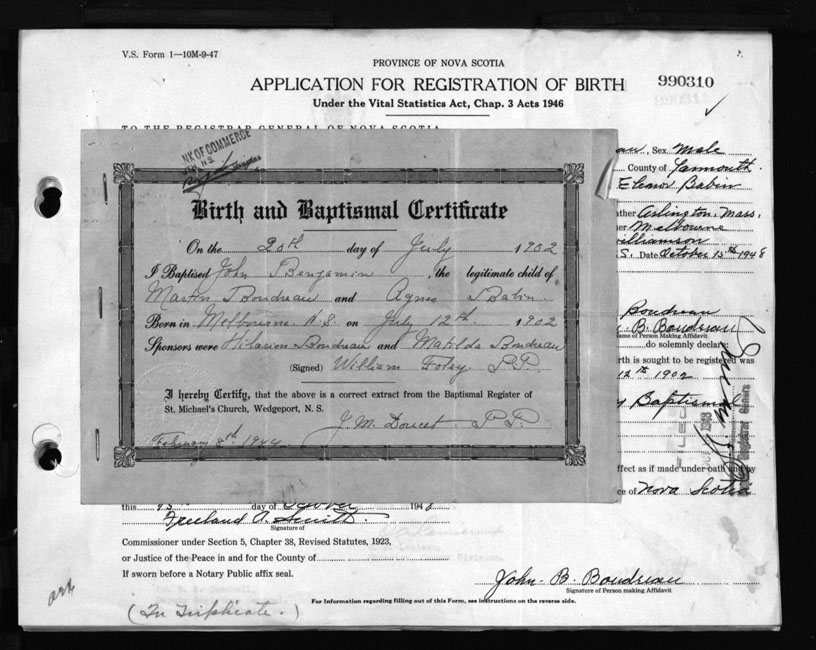 V.S. Form 1—10M-9-47
PROVINCE OF NOVA SCOTIA
APPLICATION FOR REGISTRATION OF BIRTH
990310
Under the Vital Statistics Act, Chap. 3 Acts 1946
TO THE REGISTRAR GENERAL OF NOVA SCOTIA
NK OF COMMERCE
N.S.
Birth and Baptismal Certificate
On the 20th day of July 1902
I Baptised John Benjamin, the legitimate child of
Martin Boudreau and Agnes Babin
Born in Melbourne N.S. on July 12th 1902
Sponsors were Hilarion Boudreau and Matilda Boudreau
(Signed) William Foley P.P.
I hereby Certify, that the above is a correct extract from the Baptismal Register of
St. Michael's Church, Wedgeport, N. S.
J. M. Doucet P.P.
February 8th 1944
au, Sex Male
County of Yarmouth
Eleanor Babin
ather Arlington, Mass.
er Melbourne
illiamson
S. Date October 15th 1948
Boudreau
B. Boudreau
Name of Person Making Affidavit
do solemnly declare
rth is sought to be registered was
12th 1902
y Baptismal
ffect as if made under oath and by
ce of Nova Scotia
this 15 day of October 1948
Freeland A. Smith
Signature of
Commissioner under Section 5, Chapter 38, Revised Statutes, 1923,
or Justice of the Peace in and for the County of
If sworn before a Notary Public affix seal.
John B. Boudreau
Signature of Person making Affidavit
(In Triplicate.)
For Information regarding filling out of this Form, see instructions on the reverse side.